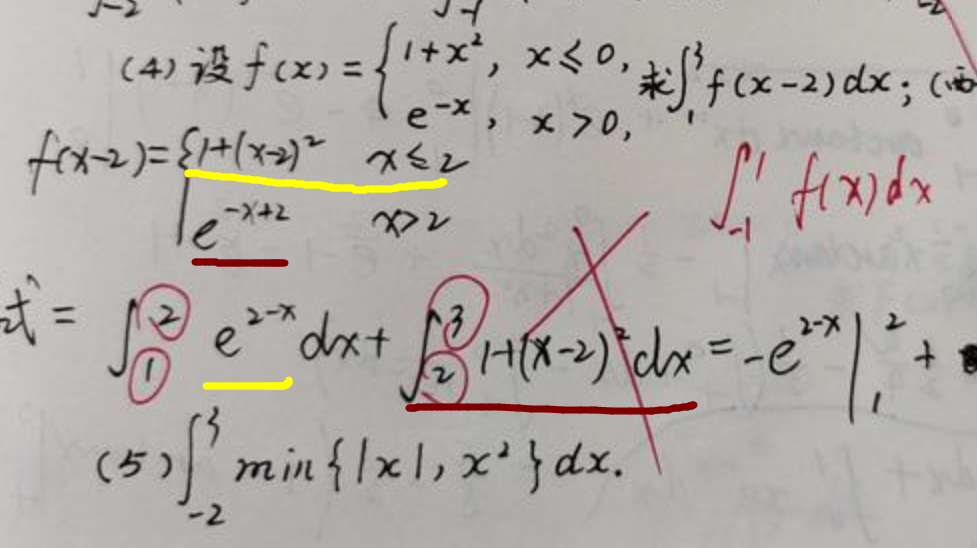 (4) 设 f(x) = { 1+x², x ≤ 0, e^{-x}, x > 0, 求 ∫_1^3 f(x-2)dx;
f(x-2) = { 1+(x-2)² x ≤ 2
e^{-x+2} x>2
∫_{-1}^1 f(x)dx
式 = ∫_1^2 e^{2-x} dx + ∫_2^3 1+(x-2)² dx = -e^{2-x} |_1^2 +
(5) ∫_{-2}^3 min{|x|, x²}dx.